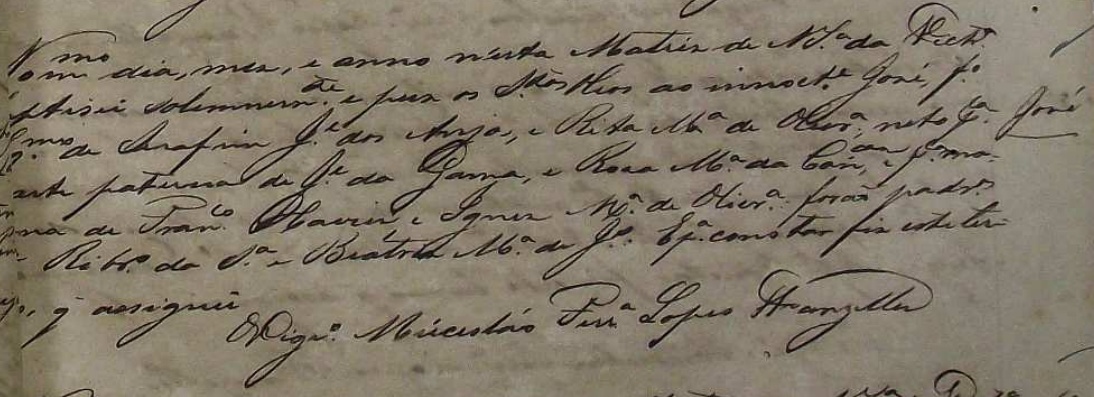 No mmo dia, mez, e anno n'esta Matriz de N. Sª da
ptisei solemnemte e puz os Stos Oleos ao innocte José, fº
de Serafim Je dos Anjos, e Rita Mª de Olivrª, neto pª José
arte paterna de Je da Gama, e Rosa Mª da Concam, e pª ma-
rna de Franco Chavier e Ignez Mª de Olivrª. forão padros
Ribrº da Sª e Beatriz Mª de J. E pª constar fiz este ter-
q assignei
O Vigrº Ferrª Lopes